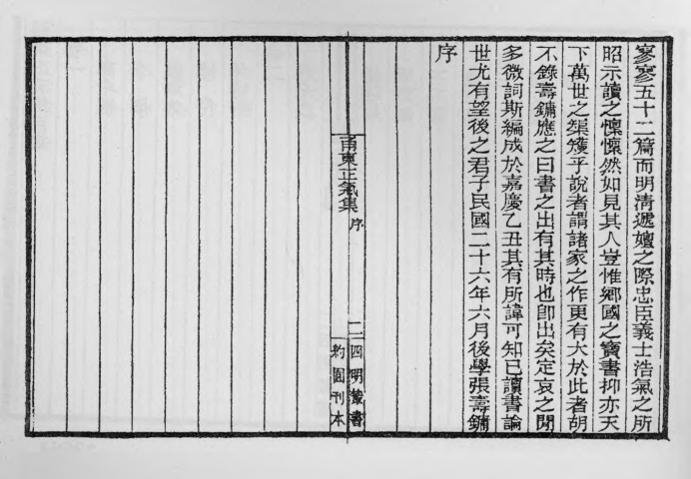 寥寥五十二篇而明清遞嬗之際忠臣義士浩氣之所
昭示讀之懍懍然如見其人豈惟鄉國之寶書抑亦天
下萬世之榘矱乎說者謂諸家之作更有大於此者胡
不錄壽鏞應之曰書之出有其時也卽出矣定哀之閒
多微詞斯編成於嘉慶乙丑其有所諱可知已讀書論
世尤有望後之君子民國二十六年六月後學張壽鏞
序
甬東正氣集 序
二
四明叢書
約園刊本